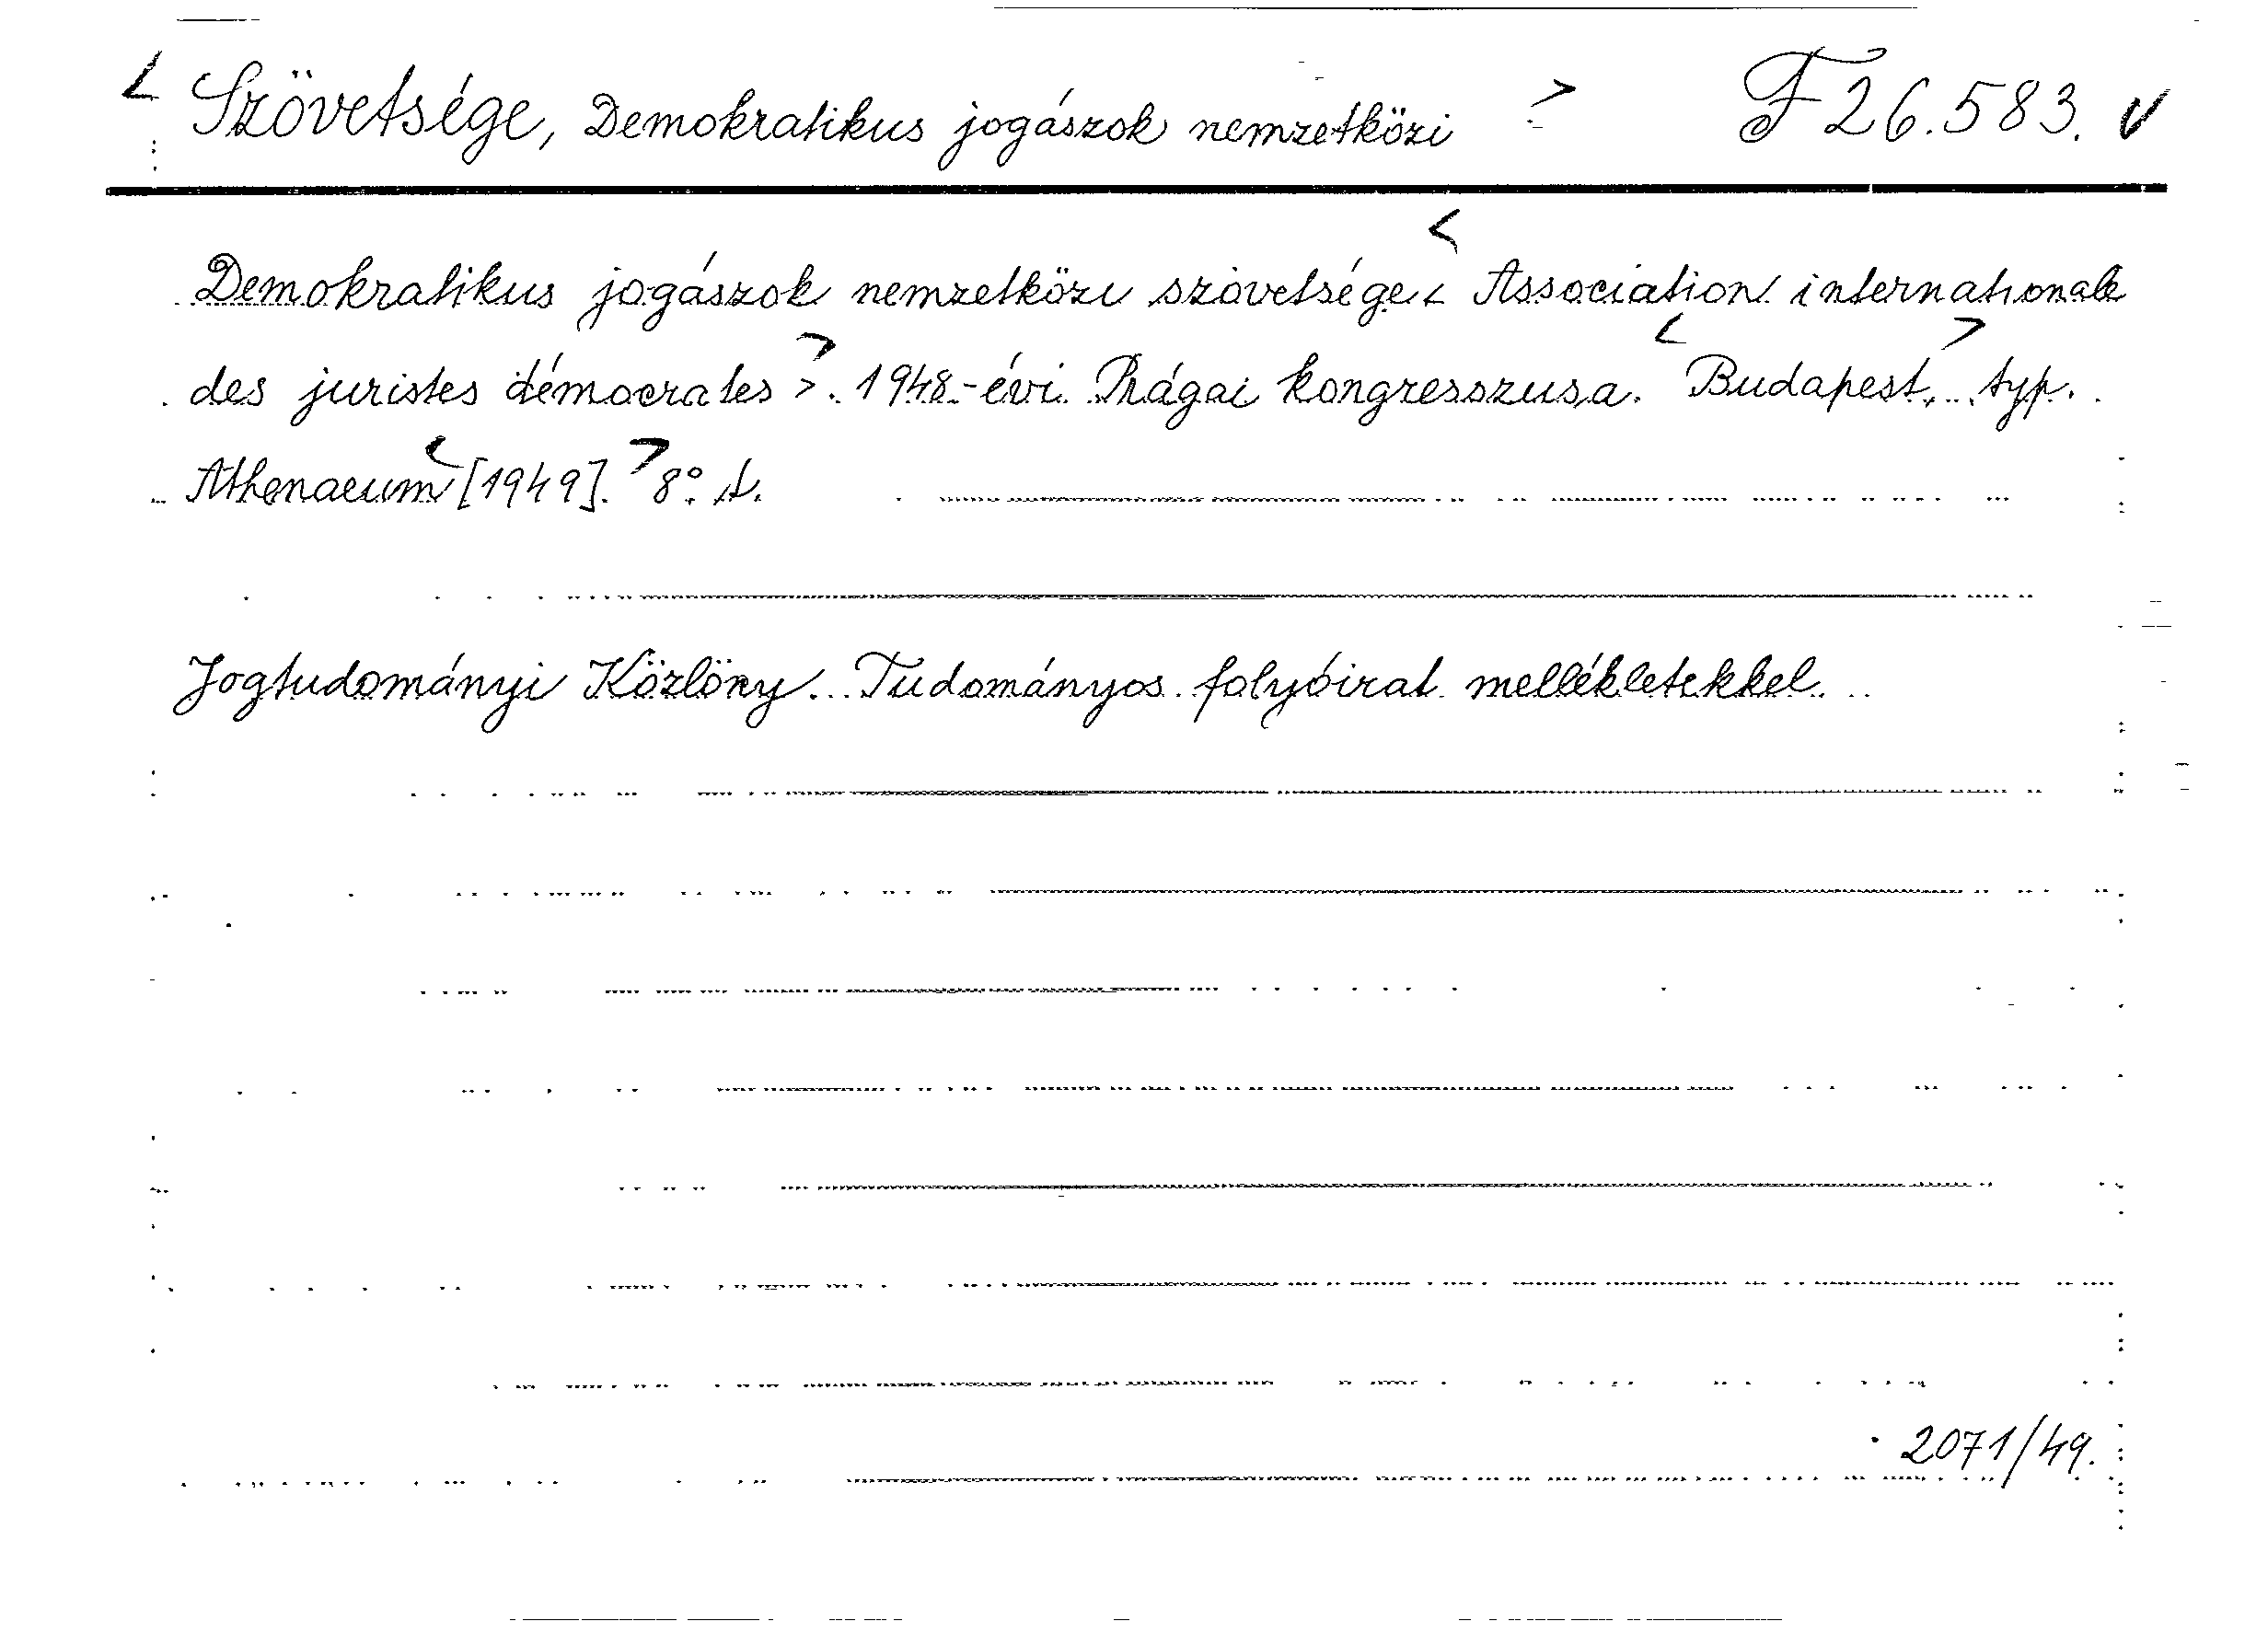 < Szövetsége, Demokratikus jogászok nemzetközi > F 26.583. v
Demokratikus jogászok nemzetközi szövetsége < Association internationale
des juristes démocrates >. 1948.-évi Prágai kongresszusa. <Budapest,> typ.
Athenaeum <[1949].> 8°.
Jogtudományi Közlöny. Tudományos folyóirat mellékletekkel.
2071/49.